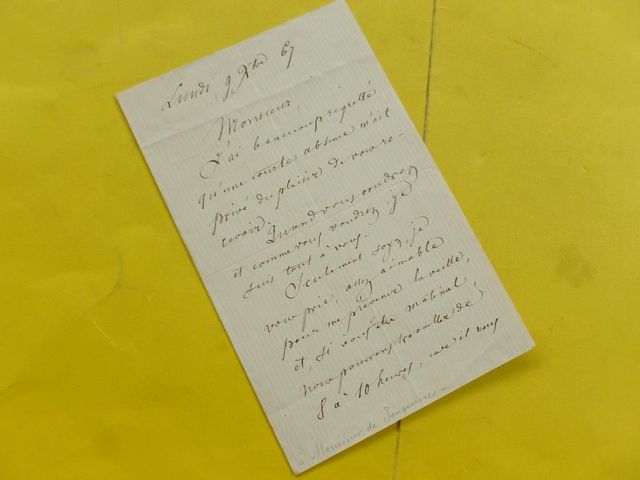 Lundi 9 Xbre 67
Monsieur,
J'ai beaucoup regretté
qu'une courte absence m'ait
privé du plaisir de vous re-
cevoir. Quand vous voudrez
et comme vous voudrez, je
suis tout à vous.
Seulement soyez, je
vous prie, assez aimable
pour me prévenir la veille,
et, si vous êtes matinal
nous pourrons travailler de
8 à 10 heures, car il nous
à Monsieur de Jonquières